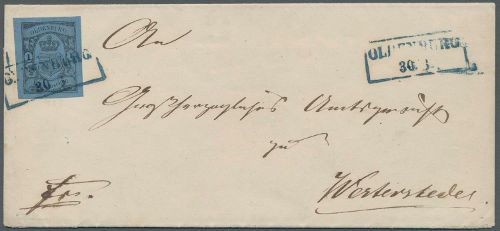 OLDENBURG
OLDENBURG
30. 3.
OLDENBURG
30. 3.
An
Großherzogliches Amtsgericht
zu
Westerstede.
fro.